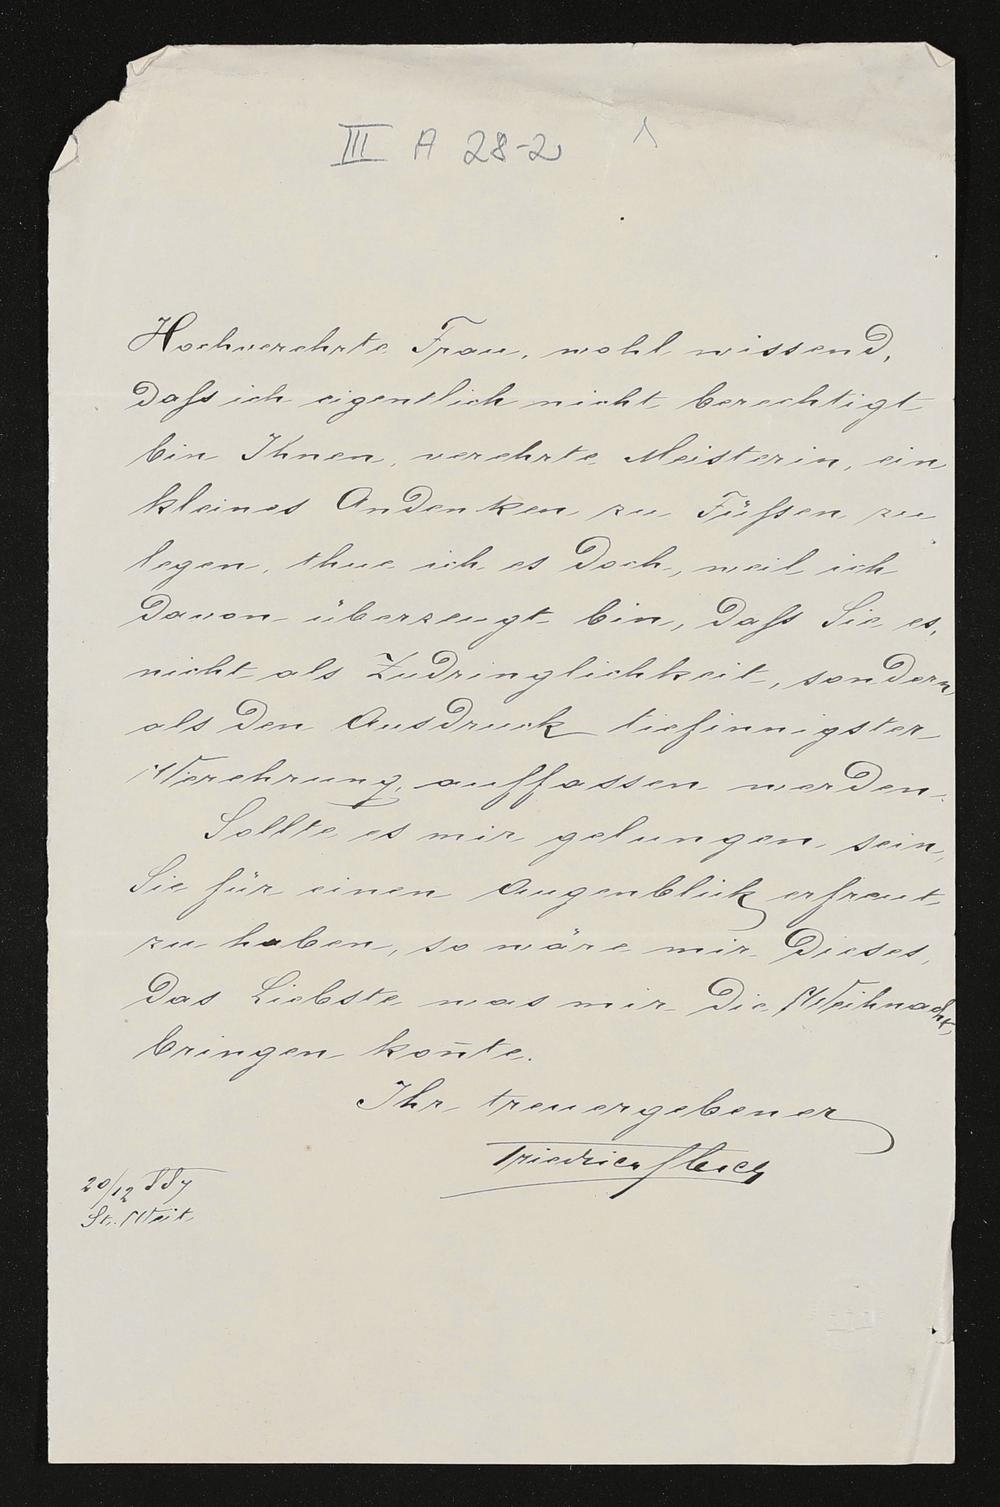 III A 28-2
Hochverehrte Frau, wohl wissend,
daſs ich eigentlich nicht berechtigt
bin Ihnen, verehrte Meisterin, ein
kleines Andenken zu Füſsen zu
legen, thue ich es doch, weil ich
davon überzeugt bin, daſs Sie es,
nicht als Zudringlichkeit, sondern
als den Ausdruck tiefinnigster
Verehrung, auffassen werden.
Sollte es mir gelungen sein,
Sie für einen Augenblick erfreut
zu haben, so wäre mir dieses,
das Liebste was mir die Weihnacht,
bringen kon̄te.
Ihr treuergebener
Friedrich
20/12 887
St. Veit